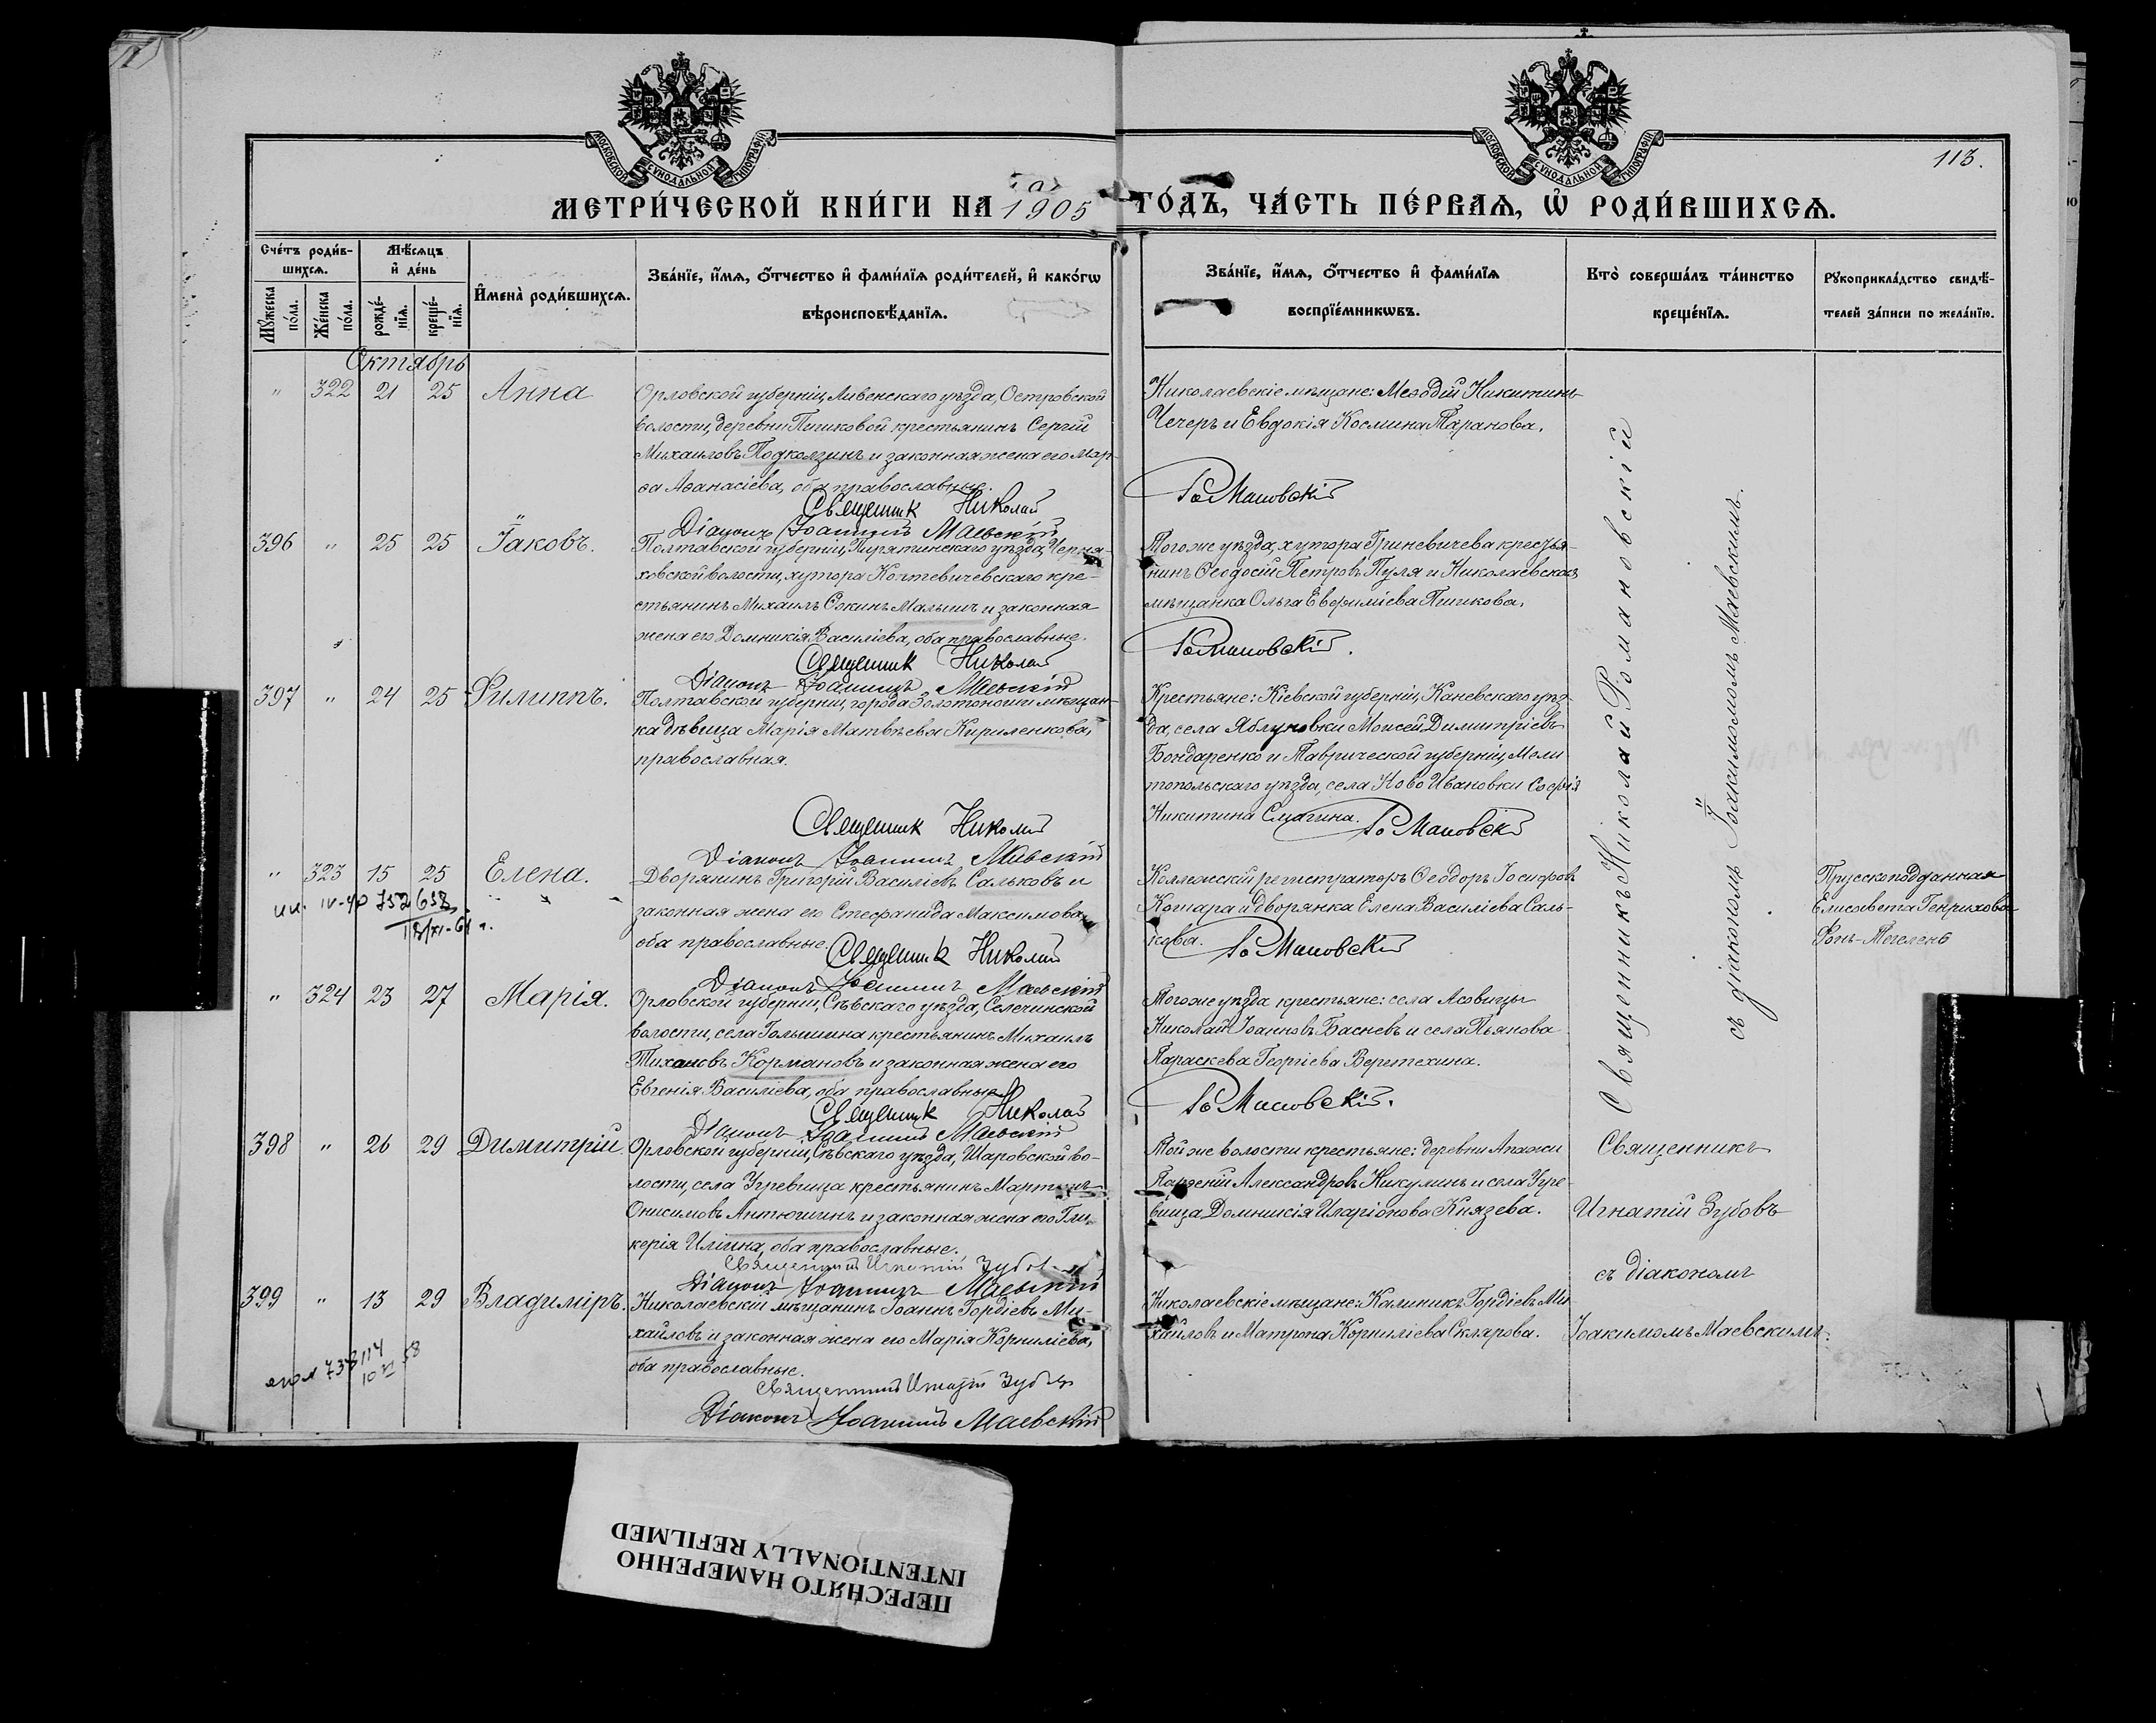 113.
МОСКОВСКОЙ СУНОДАЛЬНОЙ ТИПОГРАФІИ
МОСКОВСКОЙ СУНОДАЛЬНОЙ ТИПОГРАФІИ
МЕТРИ́ЧЕСКОЙ КНИ́ГИ НА 1905 ГО́ДЪ, ЧА́СТЬ ПЕ́РВАЯ, Ѡ РОДИ́ВШИХСЯ.
Сче́тъ роди́в-
шихся.
Мꙋ́жеска
по́ла.
Же́нска
по́ла.
Мѣ́сяцъ
и҆ де́нь
рожде́-
нїя.
креще́-
нїя.
И҆мена̀ роди́вшихся.
Зва́нїе, и҆́мя, ѻ҆́тчество и҆ фами́лїя роди́телей, и҆ како́гѡ
вѣроисповѣ́данїя.
Зва́нїе, и҆́мя, ѻ҆́тчество и҆ фами́лїя
воспрїе́мникѡвъ.
Кто̀ соверша́лъ та́инство
креще́нїя.
Рꙋкоприкла́дство свидѣ́-
телей за́писи по жела́нїю.
Октябрь
" 322 21 25 Анна
Орловской губерніи, Ливенскаго уѣзда, Островской
волости, деревни Пашковой крестьянинъ Сергій
Михаиловъ Подколзинъ и законная жена его Мар-
ѳа Аѳанасіева, оба православные.
Священник Николай
Діаконъ Іоакимъ Маевскій
Николаевскіе мѣщане: Меѳодій Никитинъ
Чечеръ и Евдокія Космина Таранова.
Романовскій
396 " 25 25 Іаковъ.
Полтавской губерніи, Пирятинскаго уѣзда, Черня-
ховской волости, хутора Коптевичевскаго кре-
стьянинъ Михаилъ Ѳокинъ Малышъ и законная
жена его Домникія Василіева, оба православные.
Священник Николай
Діаконъ Іоакимъ Маевскій
Тогоже уѣзда, хутора Гриневичева крестья-
нинъ Ѳеодосій Петровъ Пуля и Николаевская
мѣщанка Ольга Евфиміева Пашкова.
Романовскій.
397 " 24 25 Филиппъ.
Полтавской губерніи, города Золотоноши мѣщан-
ка дѣвица Марія Матвѣева Кириленкова,
православная.
Священник Николай
Діаконъ Іоакимъ Маевскій
Крестьяне: Кіевской губерніи, Каневскаго уѣз-
да, села Яблуновки Моисей Димитріевъ
Бондаренко и Таврической губерніи, Мели
топольскаго уѣзда, села Ново Ивановки Софія
Никитина Смагина. Романовскій
" 323 15 25 Елена.
Дворянинъ Григорій Василіевъ Сальковъ и
законная жена его Стефанида Максимова,
оба православные. Священник Николай
Діаконъ Іоакимъ Маевскій
Коллежскій регистраторъ Ѳеодоръ Іосифовъ
Котара и дворянка Елена Василіева Саль-
кова. Романовскій
Прусскоподданная
Елисавета Генрихова
" 324 23 27 Марія.
Орловской губерніи, Сѣвскаго уѣзда, Селечинской
волости, села Голышина крестьянинъ Михаилъ
Тихановъ Кормановъ и законная жена его
Евгенія Василіева, оба православные.
Священник Николай
Діаконъ Іоакимъ Маевскій
Тогоже уѣзда крестьяне: села Асовицы
Николай Іоанновъ Басневъ и села Пьянова
Параскева Георгіева Веретехина.
Романовскій.
Священникъ Николай Романовскій
съ діакономъ Іоакимомъ Маевскимъ.
398 " 26 29 Димитрій.
Орловской губерніи, Сѣвскаго уѣзда, Шаровской во-
лости, села Угревища крестьянинъ Мартинъ
Онисимовъ Антюшинъ и законная жена его Гли-
керія Иліина, оба православные.
Священникъ Игнатій Зубовъ
Діаконъ Іоакимъ Маевскій
Тойже волости крестьяне: деревни Апажи
Парѳеній Александровъ Никулинъ и села Угре-
вища Домникія Иларіонова Князева.
Священникъ
Игнатій Зубовъ
съ діакономъ
Іоакимомъ Маевскимъ.
399 " 13 29 Владиміръ.
Николаевскій мѣщанинъ Іоаннъ Гордіевъ Ми-
хайловъ и законная жена его Марія Корниліева,
оба православные.
Священникъ Игнатій Зубовъ
Діаконъ Іоакимъ Маевскій
Николаевскіе мѣщане: Калиникъ Гордіевъ Ми
хайловъ и Матрона Корниліева Склярова.
ПЕРЕСНЯТО НАМЕРЕННО
INTENTIONALLY REFILMED